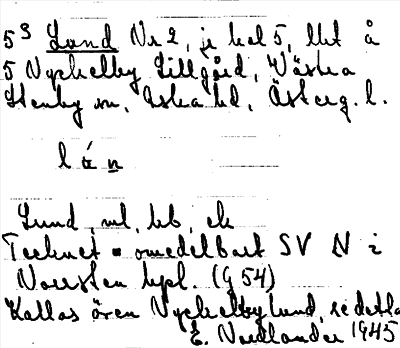 5³ Lund Nr 2, jr bel 5, lht å
5 Nyckelby Lillgård, Västra
Stenby sn, Aska hd, Österg. l.
l ń n
Lund, ml, bb, ek
Tecknet omedelbart SV N i
Norrsten kpl. (G 54)
Kallas även Nyckelbylund, se detta
E. Nordlander 1945